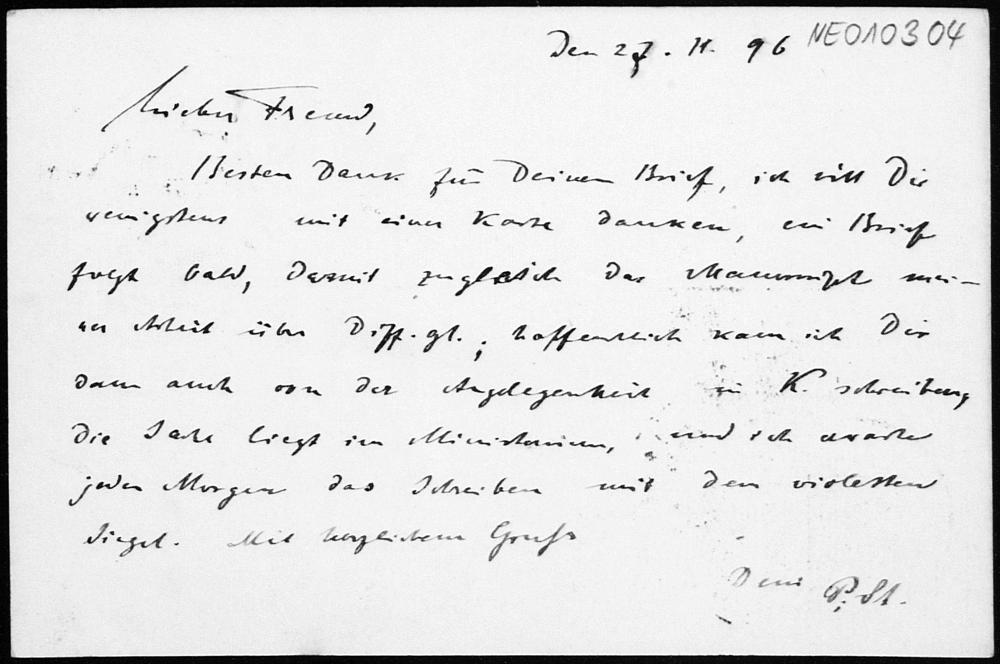 Den 27. 11. 96 NEO10304
Lieber Freund,
Besten Dank für Deinen Brief, ich will Dir
wenigstens mit einer Karte danken, ein Brief
folgt bald, damit zugleich das Manuscript mei-
ner Arbeit über Diff.gl.; hoffentlich kann ich Dir
dann auch von der Angelegenheit in K. schreiben,
die Sache liegt im Ministerium, und ich erwarte
jeden Morgen das Schreiben mit dem violetten
Siegel. Mit herzlichem Gruss
Dein P. St.